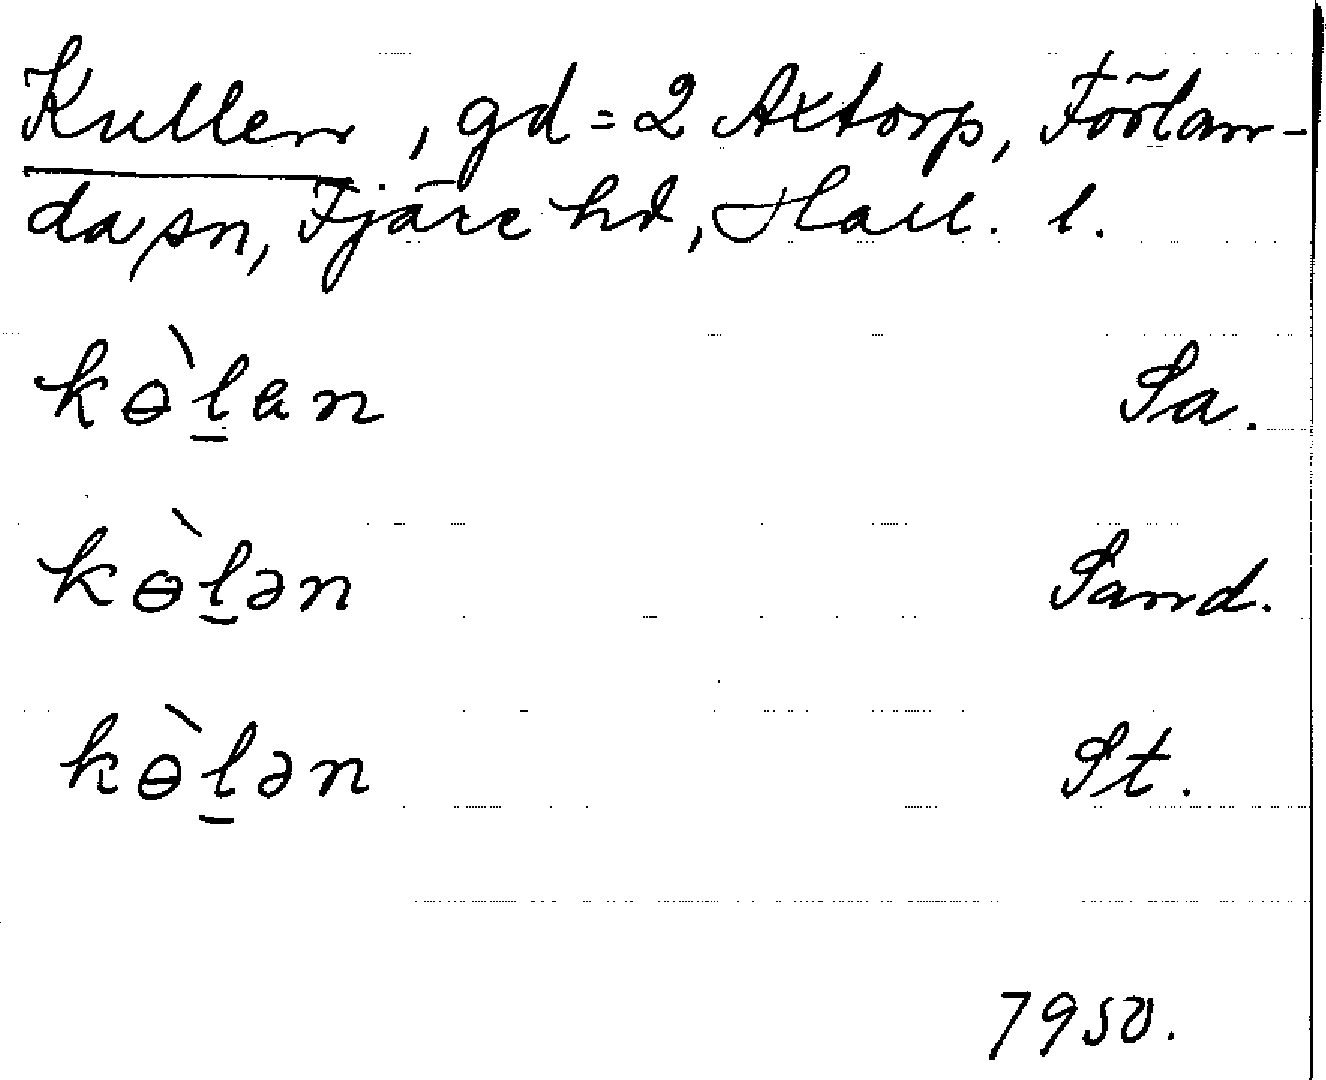 Kullen, gd = 2 Axtorp, Förlan-
da sn, Fjäre hd, Hall. l.
kɵ̀l̠an Sa.
kɵ̀l̠ən Sand.
kɵ̀l̠ən St.
7950.